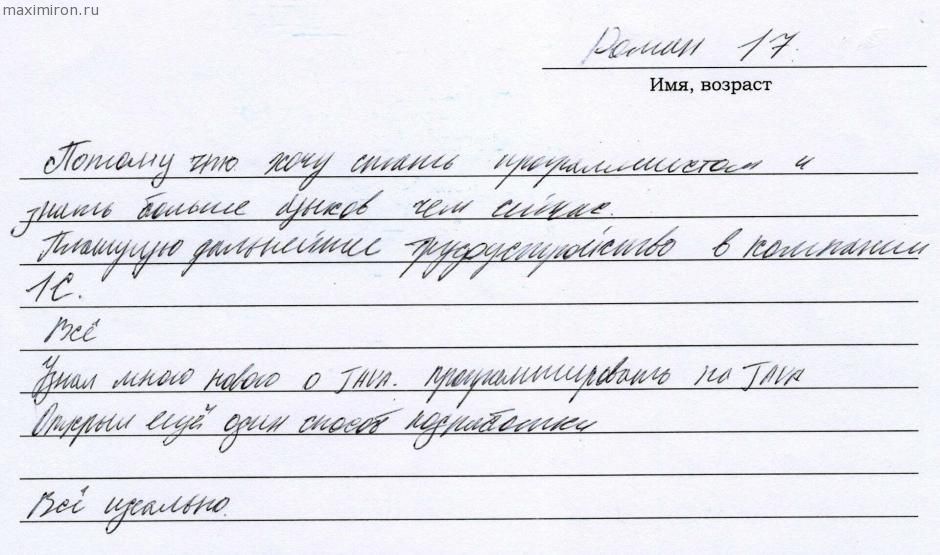 maximiron.ru
Роман 17.
Имя, возраст
Потому что хочу стать программистом и
знать больше языков чем сейчас.
Планирую дальнейшее трудоустройство в компании
1С.
Всё
Узнал много нового о JAVA. программировать на JAVA
Открыл ещё один способ подработки
Всё идеально.